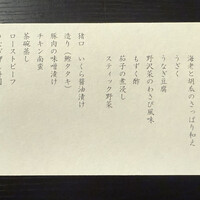 海老と胡瓜のさっぱり和え
うざく
うなぎ豆腐
野沢菜のわさび風味
もずく酢
茄子の煮浸し
スティック野菜
猪口 いくら醤油漬け
造り(鰹タタキ)
豚肉の味噌漬け
チキン南蛮
茶碗蒸し
ローストビーフ